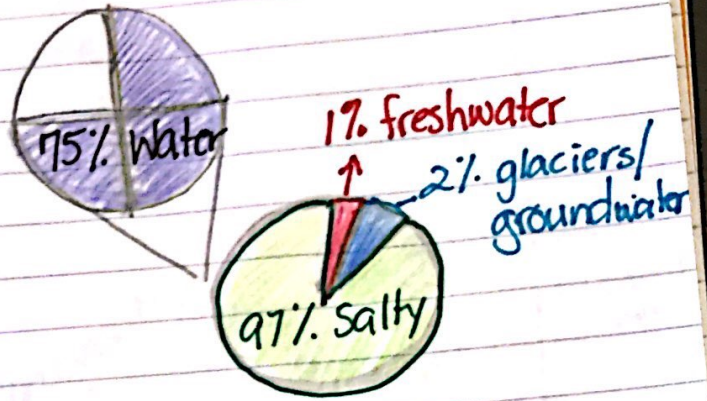 75% Water
1% freshwater
2% glaciers/
groundwater
97% Salty